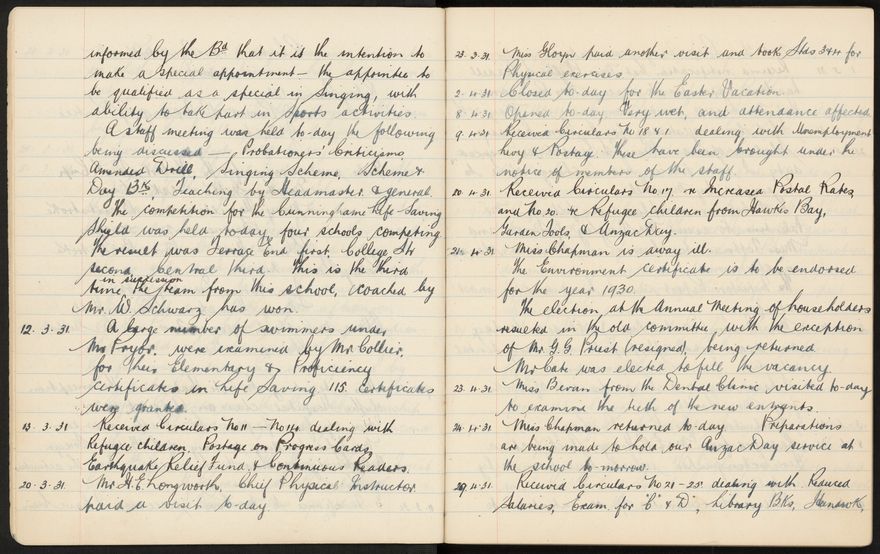 informed by the Bd that it is the intention to
make a special appointment – the appointee to
be qualified as a special in Singing, with
ability to take part in Sports activities.
A staff meeting was held to-day the following
being discussed – Probationers' Criticisms,
Amended Drill, Singing Scheme, Scheme &
Day Bk. Teaching by Headmaster & general.
The competition for the Cunninghame Life-Saving
Shield was held today four schools competing
the result was Terrace End first, College St
second, Central third. This is the third
in succession
time, the team from this school, coached by
Mr. W Schwarz has won.
12.3.31. A large number of swimmers under
Mr Pryor, were examined by Mr. Collier,
for their Elementary & Proficiency
certificates in Life Saving 115 certificates
were granted.
13.3.31 Received Circulars No 11 – No 14 dealing with
Refugee children, Postage on Progress Cards,
Earthquake Relief Fund, & Continuous Readers.
20.3.31. Mr H.E Longworth, Chief Physical Instructor
paid a visit to-day
23.3.31. Miss Gloyn paid another visit and took Stds 3&4 for
Physical exercises
2.4.31 Closed to-day for the Easter Vacation.
8.4.31 Opened to-day Very wet, and attendance affected.
9.4.31 Received Circulars No 18 & 1 dealing with Unemployment
Levy & Postage. These have been brought under the
notice of members of the staff.
20.4.31. Received Circulars No 17, re Increased Postal Rates,
and No 20. re Refugee children from Hawkes Bay,
Garden Tools, & Anzac Day.
21.4.31 Miss Chapman is away ill.
The Environment certificate is to be endorsed
for the year 1930.
The election, at the Annual Meeting of householders
resulted in the old committee, with the exception
of Mr. G.G. Priest (resigned), being returned
Mr Cate was elected to fill the vacancy
23.4.31. Miss Bevan from the Dental Clinic visited to-day
to examine the teeth of the new entrants.
24.4.31 Miss Chapman returned to day Preparations
are being made to hold our Anzac Day service at
the school to-morrow.
29.4.31. Received Circulars No 21-25 dealing with Reduced
Salaries, Exam. for 'C' & 'D', Library Bks,